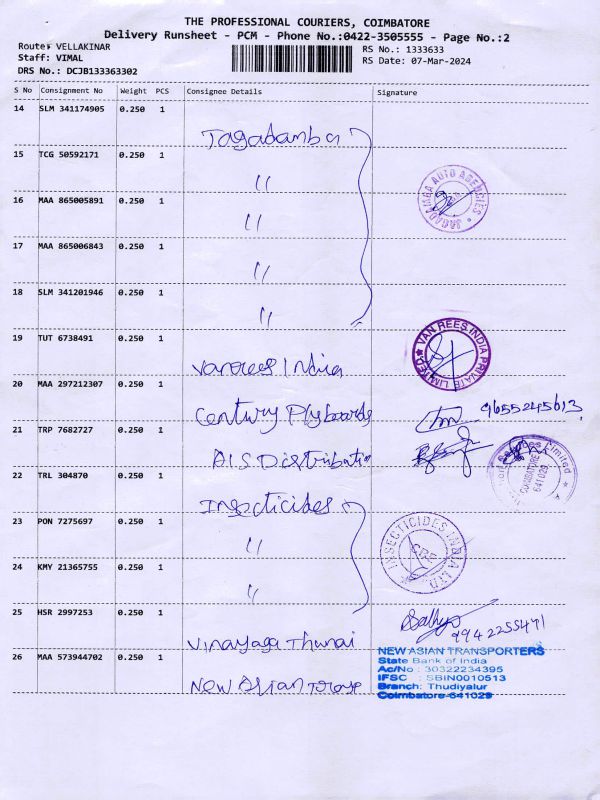 THE PROFESSIONAL COURIERS, COIMBATORE
Delivery Runsheet - PCM - Phone No.:0422-3505555 - Page No.:2
Route: VELLAKINAR
RS No.: 1333633
Staff: VIMAL
RS Date: 07-Mar-2024
DRS No.: DCJB133363302
S No Consignment No Weight PCS Consignee Details Signature
14 SLM 341174905 0.250 1
Jagadamba
15 TCG 50592171 0.250 1
"
JAGADAMBA AUTO AGENCIES
16 MAA 865005891 0.250 1
"
17 MAA 865006843 0.250 1
"
18 SLM 341201946 0.250 1
"
19 TUT 6738491 0.250 1
VAN REES INDIA PRIVATE LIMITED
Vanrees India
20 MAA 297212307 0.250 1
Century Plyboards 9655245613
21 TRP 7682727 0.250 1
AIS Distribution
Limited
COIMBATORE
641029
22 TRL 304870 0.250 1
Insecticides
23 PON 7275697 0.250 1
"
INSECTICIDES INDIA LTD
24 KMY 21365755 0.250 1
"
25 HSR 2997253 0.250 1
Sathya
9942255471
Vinayaga Thunai
26 MAA 573944702 0.250 1
NEW ASIAN TRANSPORTERS
State Bank of India
Ac/No : 30322234395
IFSC : SBIN0010513
Branch: Thudiyalur
Coimbatore-641029
New Asian